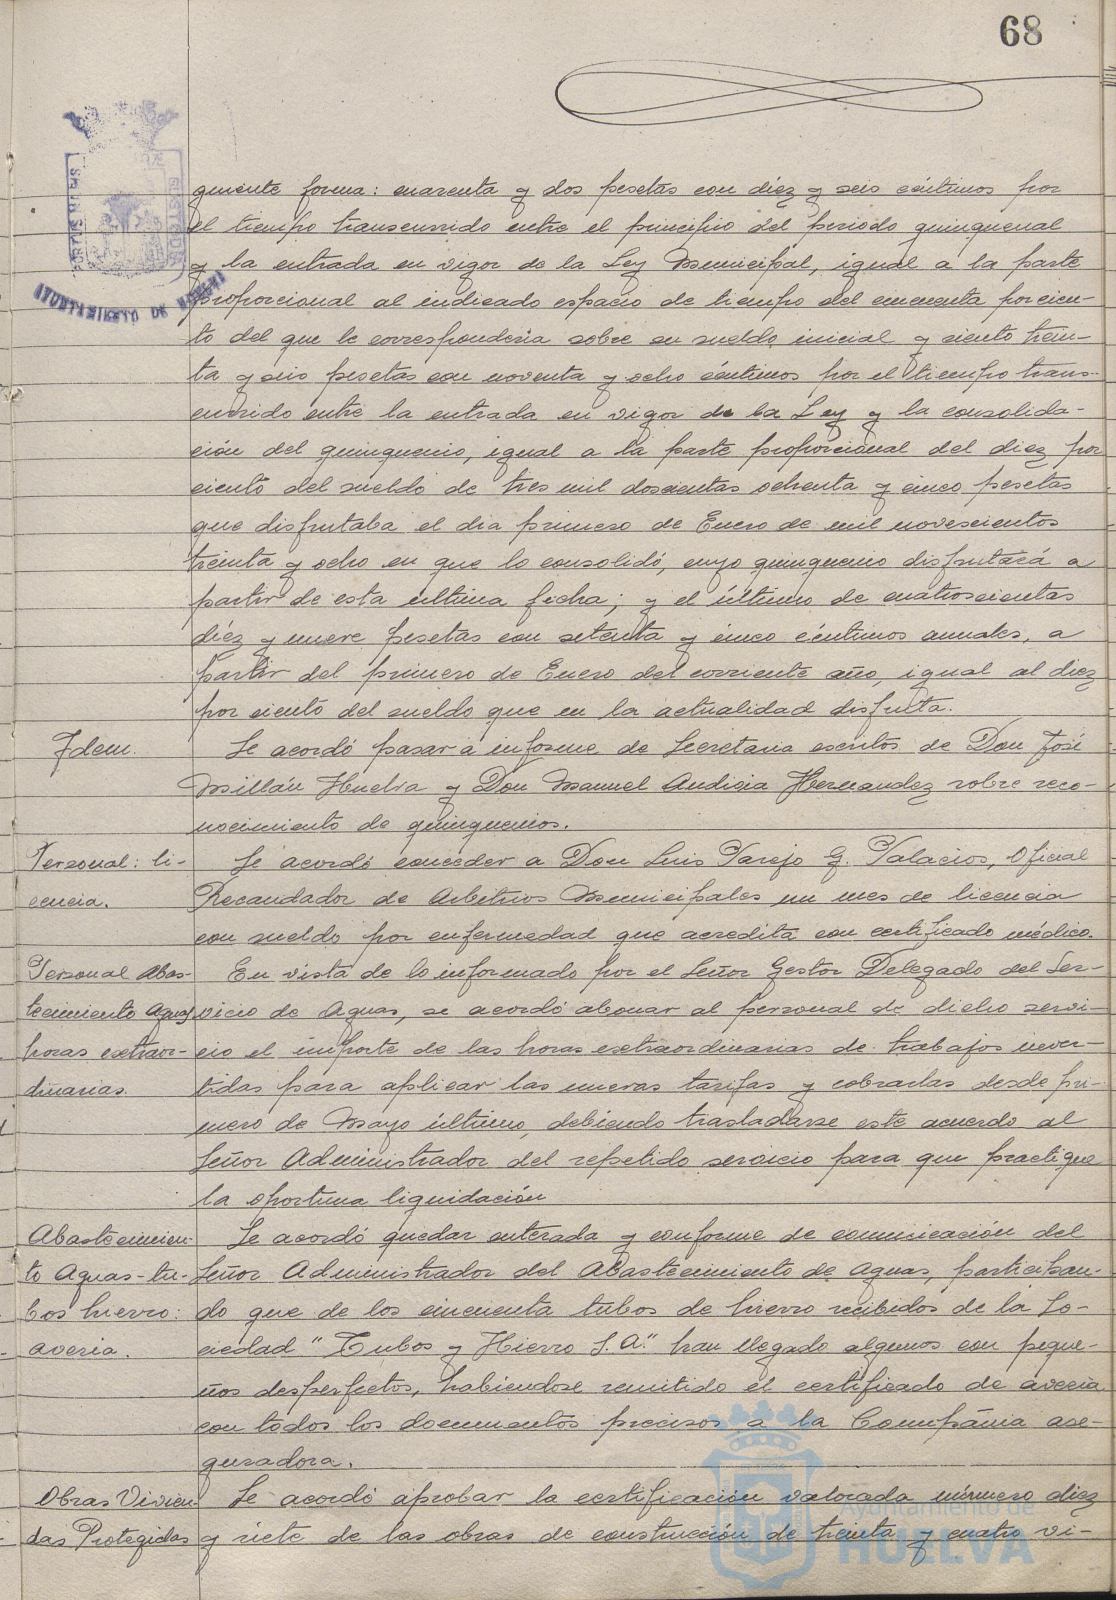 68
guiente forma: cuarenta y dos pesetas con diéz y seis céntimos por
el tiempo transcurrido entre el principio del periodo quinquenal
y la entrada en vigor de la Ley Municipal, igual a la parte
proporcional al indicado espacio de tiempo del cincuenta por cien-
to del que le correspondería sobre su sueldo inicial y ciento trein-
ta y seis pesetas con noventa y ocho céntimos por el tiempo trans-
currido entre la entrada en vigor de la Ley y la consolida-
ción del quinquenio, igual a la parte proporcional del diez por
ciento del sueldo de tres mil doscientas ochenta y cinco pesetas
que disfrutaba el día primero de Enero de mil novescientos
treinta y ocho en que lo consolidó, cuyo quinquenio disfrutará a
partir de esta última fecha; y el último de cuatroscientas
diéz y nueve pesetas con setenta y cinco céntimos anuales, a
partir del primero de Enero del corriente año, igual al diez
por ciento del sueldo que en la actualidad disfruta.
Idem. Se acordó pasar a informe de Secretaria escritos de Don José
Millán Huelva y Don Manuel Audicia Hernandez sobre reco-
nocimiento de quinquenios.
Personal: li- Se acordó conceder a Don Luis Parejo G. Palacios, Oficial
cencia. Recaudador de Arbitrios Municipales un mes de licencia
con sueldo por enfermedad que acredita con certificado médico.
Personal Abas- En vista de lo informado por el Señor Gestor Delegado del Ser-
tecimiento Aguas vicio de Aguas, se acordó abonar al personal de dicho servi-
horas extraor- cio el importe de las horas extraordinarias de trabajos inver-
dinarias. tidas para aplicar las nuevas tarifas y cobrarlas desde pri-
mero de Mayo último, debiendo trasladarse este acuerdo al
Señor Administrador del repetido servicio para que practique
la oportuna liquidación
Abastecimien- Se acordó quedar enterada y conforme de comunicación del
to Aguas-tu- Señor Administrador del Abastecimiento de Aguas, participan-
bos hierro: do que de los cincuenta tubos de hierro recibidos de la So-
averia. ciedad "Tubos y Hierro S.A." han llegado algunos con peque-
ños desperfectos, habiendose remitido el certificado de averia
con todos los documentos precisos a la Compañia ase-
guradora.
Obras Vivien- Se acordó aprobar la certificación valorada número diez
das Protegidas y siete de las obras de construcción de treinta y cuatro vi-
AYUNTAMIENTO DE HUELVA
PORTUS MARIS
CUSTODIA
Ayuntamiento de
HUELVA